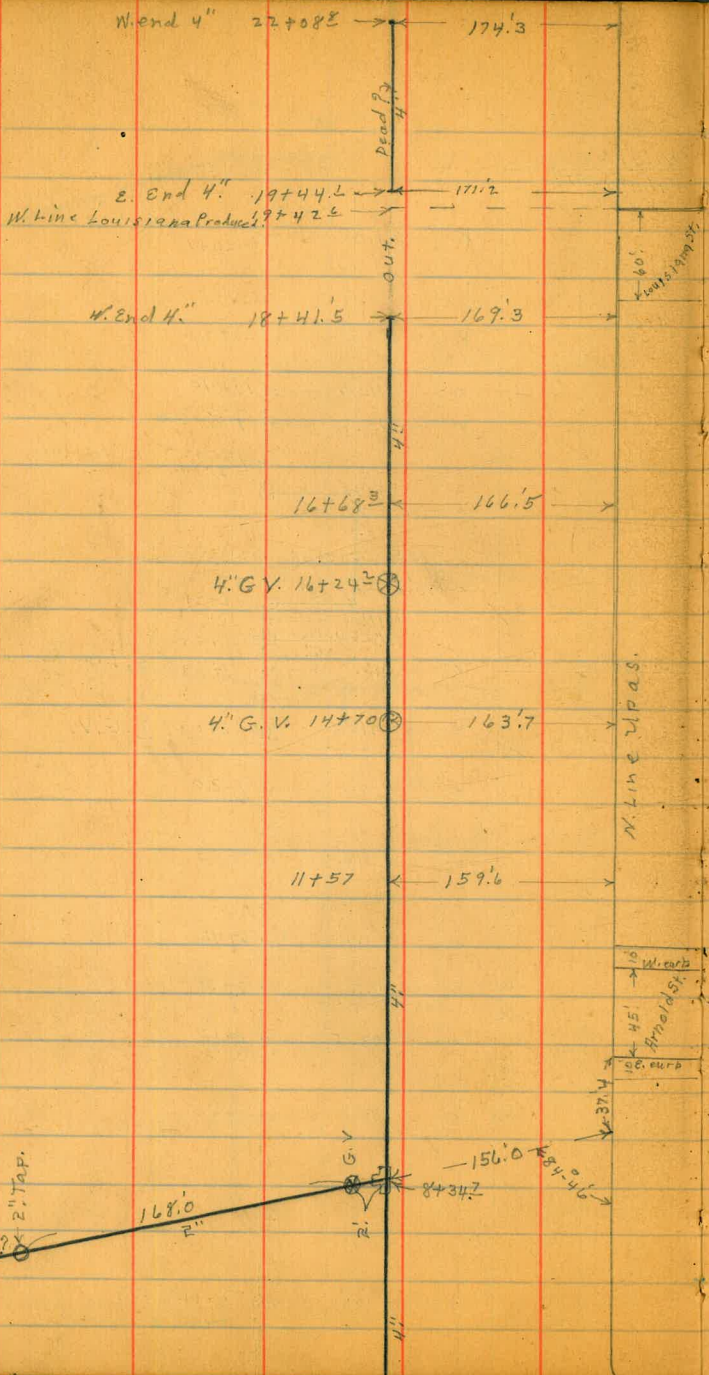 W. end 4" 22+08⁸ 174.'3
Dead ?? 4"
E. End 4." 19+44.¹ 171.'2
W. Line Louisiana Produced. 19+42⁶
Out.
60'
Louisiana St.
W. End 4." 18+41.5 169.'3
4"
16+68³ 166.'5
4." G V. 16+24²
4." G. V. 14+70 163.'7
N. Line Upas.
11+57 159.'6
10' W. curb
4"
45' Arnold St.
10' E. curb
37.'4
G.V 156.'0 84°-46'
8+34⁷
2" Tap. 168.'0 2" 2'
?
4"